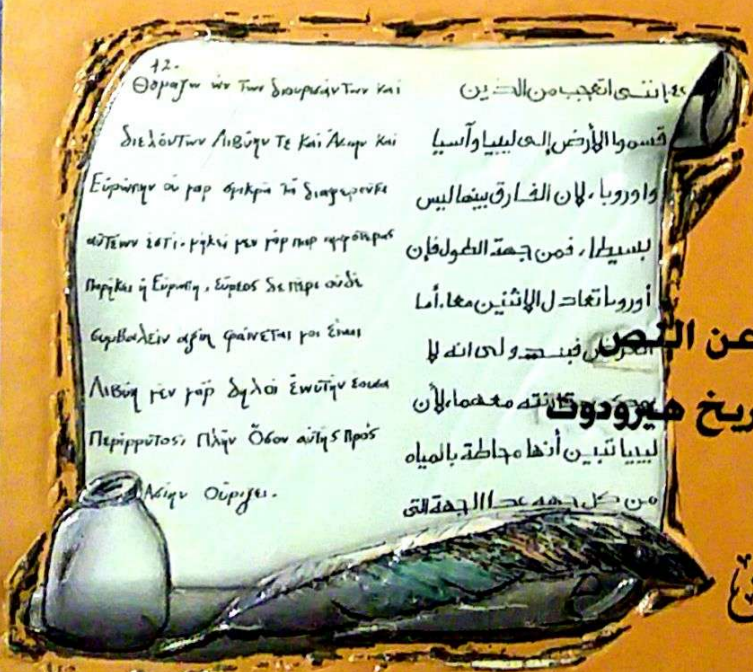 42.
Θωμάζω ὦν τῶν διουρισάντων καὶ
διελόντων Λιβύην τε καὶ Ἀσίην καὶ
Εὐρώπην οὐ γὰρ σμικρὰ τὰ διαφέροντα
αὐτέων ἐστί. μήκεϊ μὲν γὰρ παρ᾽ ἀμφοτέρας
παρήκει ἡ Εὐρώπη, εὔρεος δὲ πέρι οὐδὲ
συμβαλεῖν ἀξίη φαίνεταί μοι εἶναι
Λιβύη μὲν γὰρ δηλοῖ ἑωυτὴν ἐοῦσα
Περίρρυτος, Πλὴν Ὅσον αὐτῆς Πρὸς
Ἀσίην Οὐρίζει.
٤٢. إننى اتعجب من الذين
قسموا الأرض إلى ليبيا وآسيا
واوروبا، لان الفارق بينها ليس
بسيطا، فمن جهة الطول فإن
أوروبا تعادل الإثنين معا، أما
العرض فيبدو لى انه لا
مقارنته معهما، لأن
ليبيا تبين أنها محاطة بالمياه
من كل جهه عدا الجهة التى
عن النص
هيرودوت